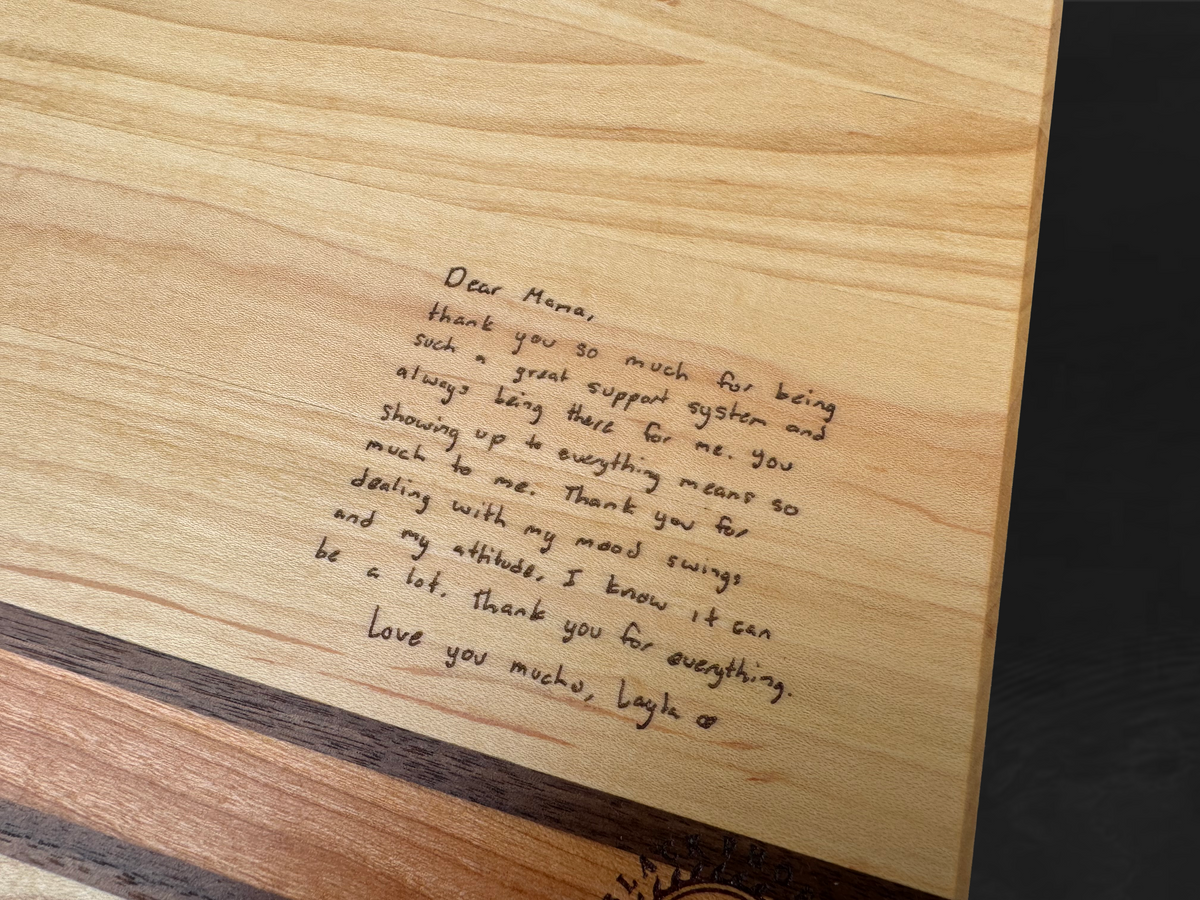 Dear Mama,
thank you so much for being
such a great support system and
always being there for me. You
showing up to everything means so
much to me. Thank you for
dealing with my mood swings
and my attitude, I know it can
be a lot. Thank you for everything.
Love you mucho, Layla